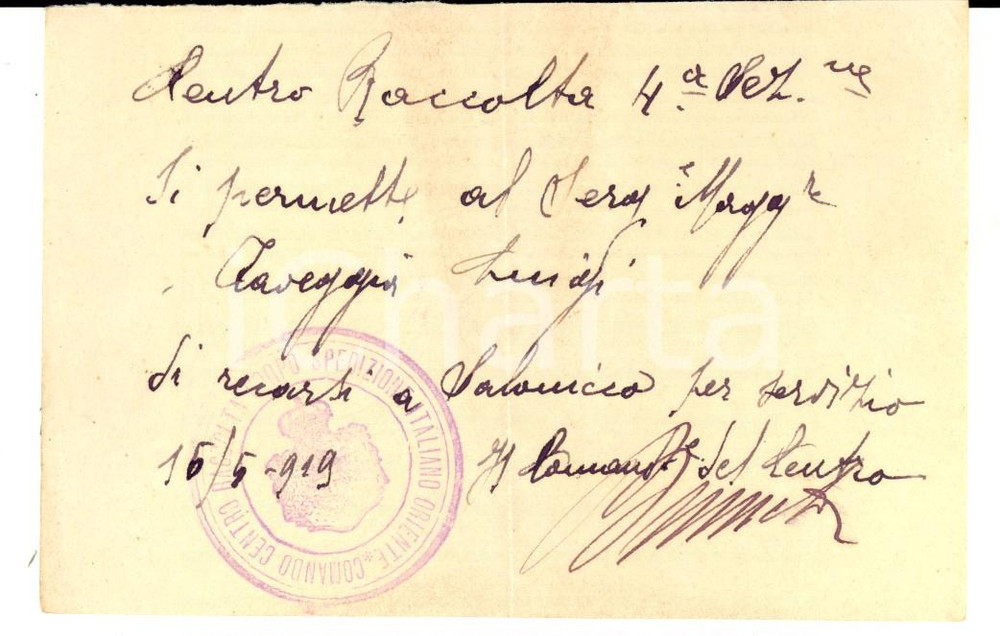 Centro Raccolta 4.ª Sez.ne
Si permette al Serg.e Magg.re
Taveggia Luigi
di recarsi a Salonicco per servizio
16/5-919 Il Comand.te del Centro
CORPO SPEDIZIONE ITALIANO ORIENTE * COMANDO CENTRO
iCharta